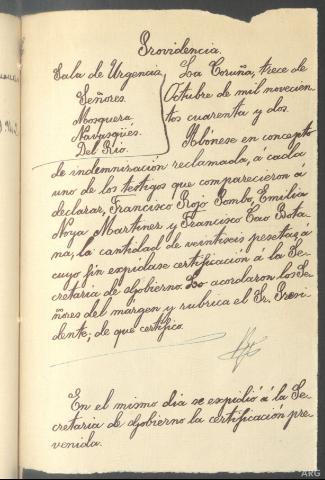 Providencia.
Sala de Urgencia
Señores.
Mosquera
Navasqüés.
Del Río.
La Coruña, trece de
Octubre de mil novecien-
tos cuarenta y dos.
Abónese en concepto
de indemnización reclamada, á cada
uno de los testigos que comparecieron á
declarar, Francisco Rojo Pombo, Emilia
Noya Martinez y Francisco Cao
na, la cantidad de veintiseis pesetas, á
cuyo fin expídase certificación á la Se-
cretaria de Gobierno. Lo acordaron los Se-
ñores del margen y rubrica el Sr. Presi-
dente; de que certifico.
En el mismo dia se expidió á la Se-
cretaria de Gobierno la certificación pre-
venida.
ARG